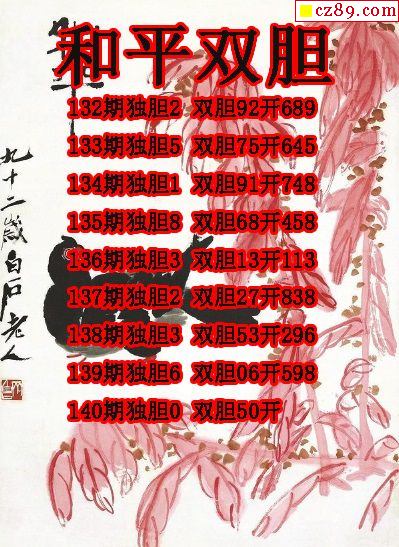 cz89.com
和平双胆
132期独胆2 双胆92开689
133期独胆5 双胆75开645
134期独胆1 双胆91开748
135期独胆8 双胆68开458
136期独胆3 双胆13开113
137期独胆2 双胆27开838
138期独胆3 双胆53开296
139期独胆6 双胆06开598
140期独胆0 双胆50开
九十二岁白石老人